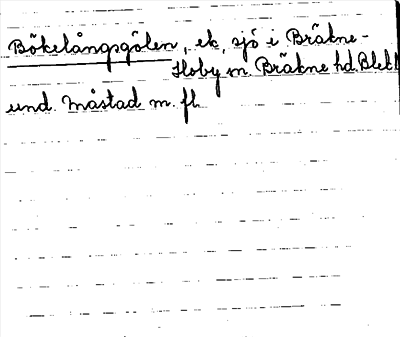 Bökelångsgölen, ek. sjö i Bräkne-
Hoby sn. Bräkne hd. Blek.
und. Måstad m. fl.